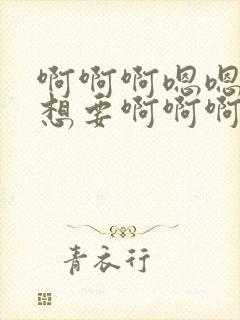 啊啊啊嗯嗯
想要啊啊啊
青衣行